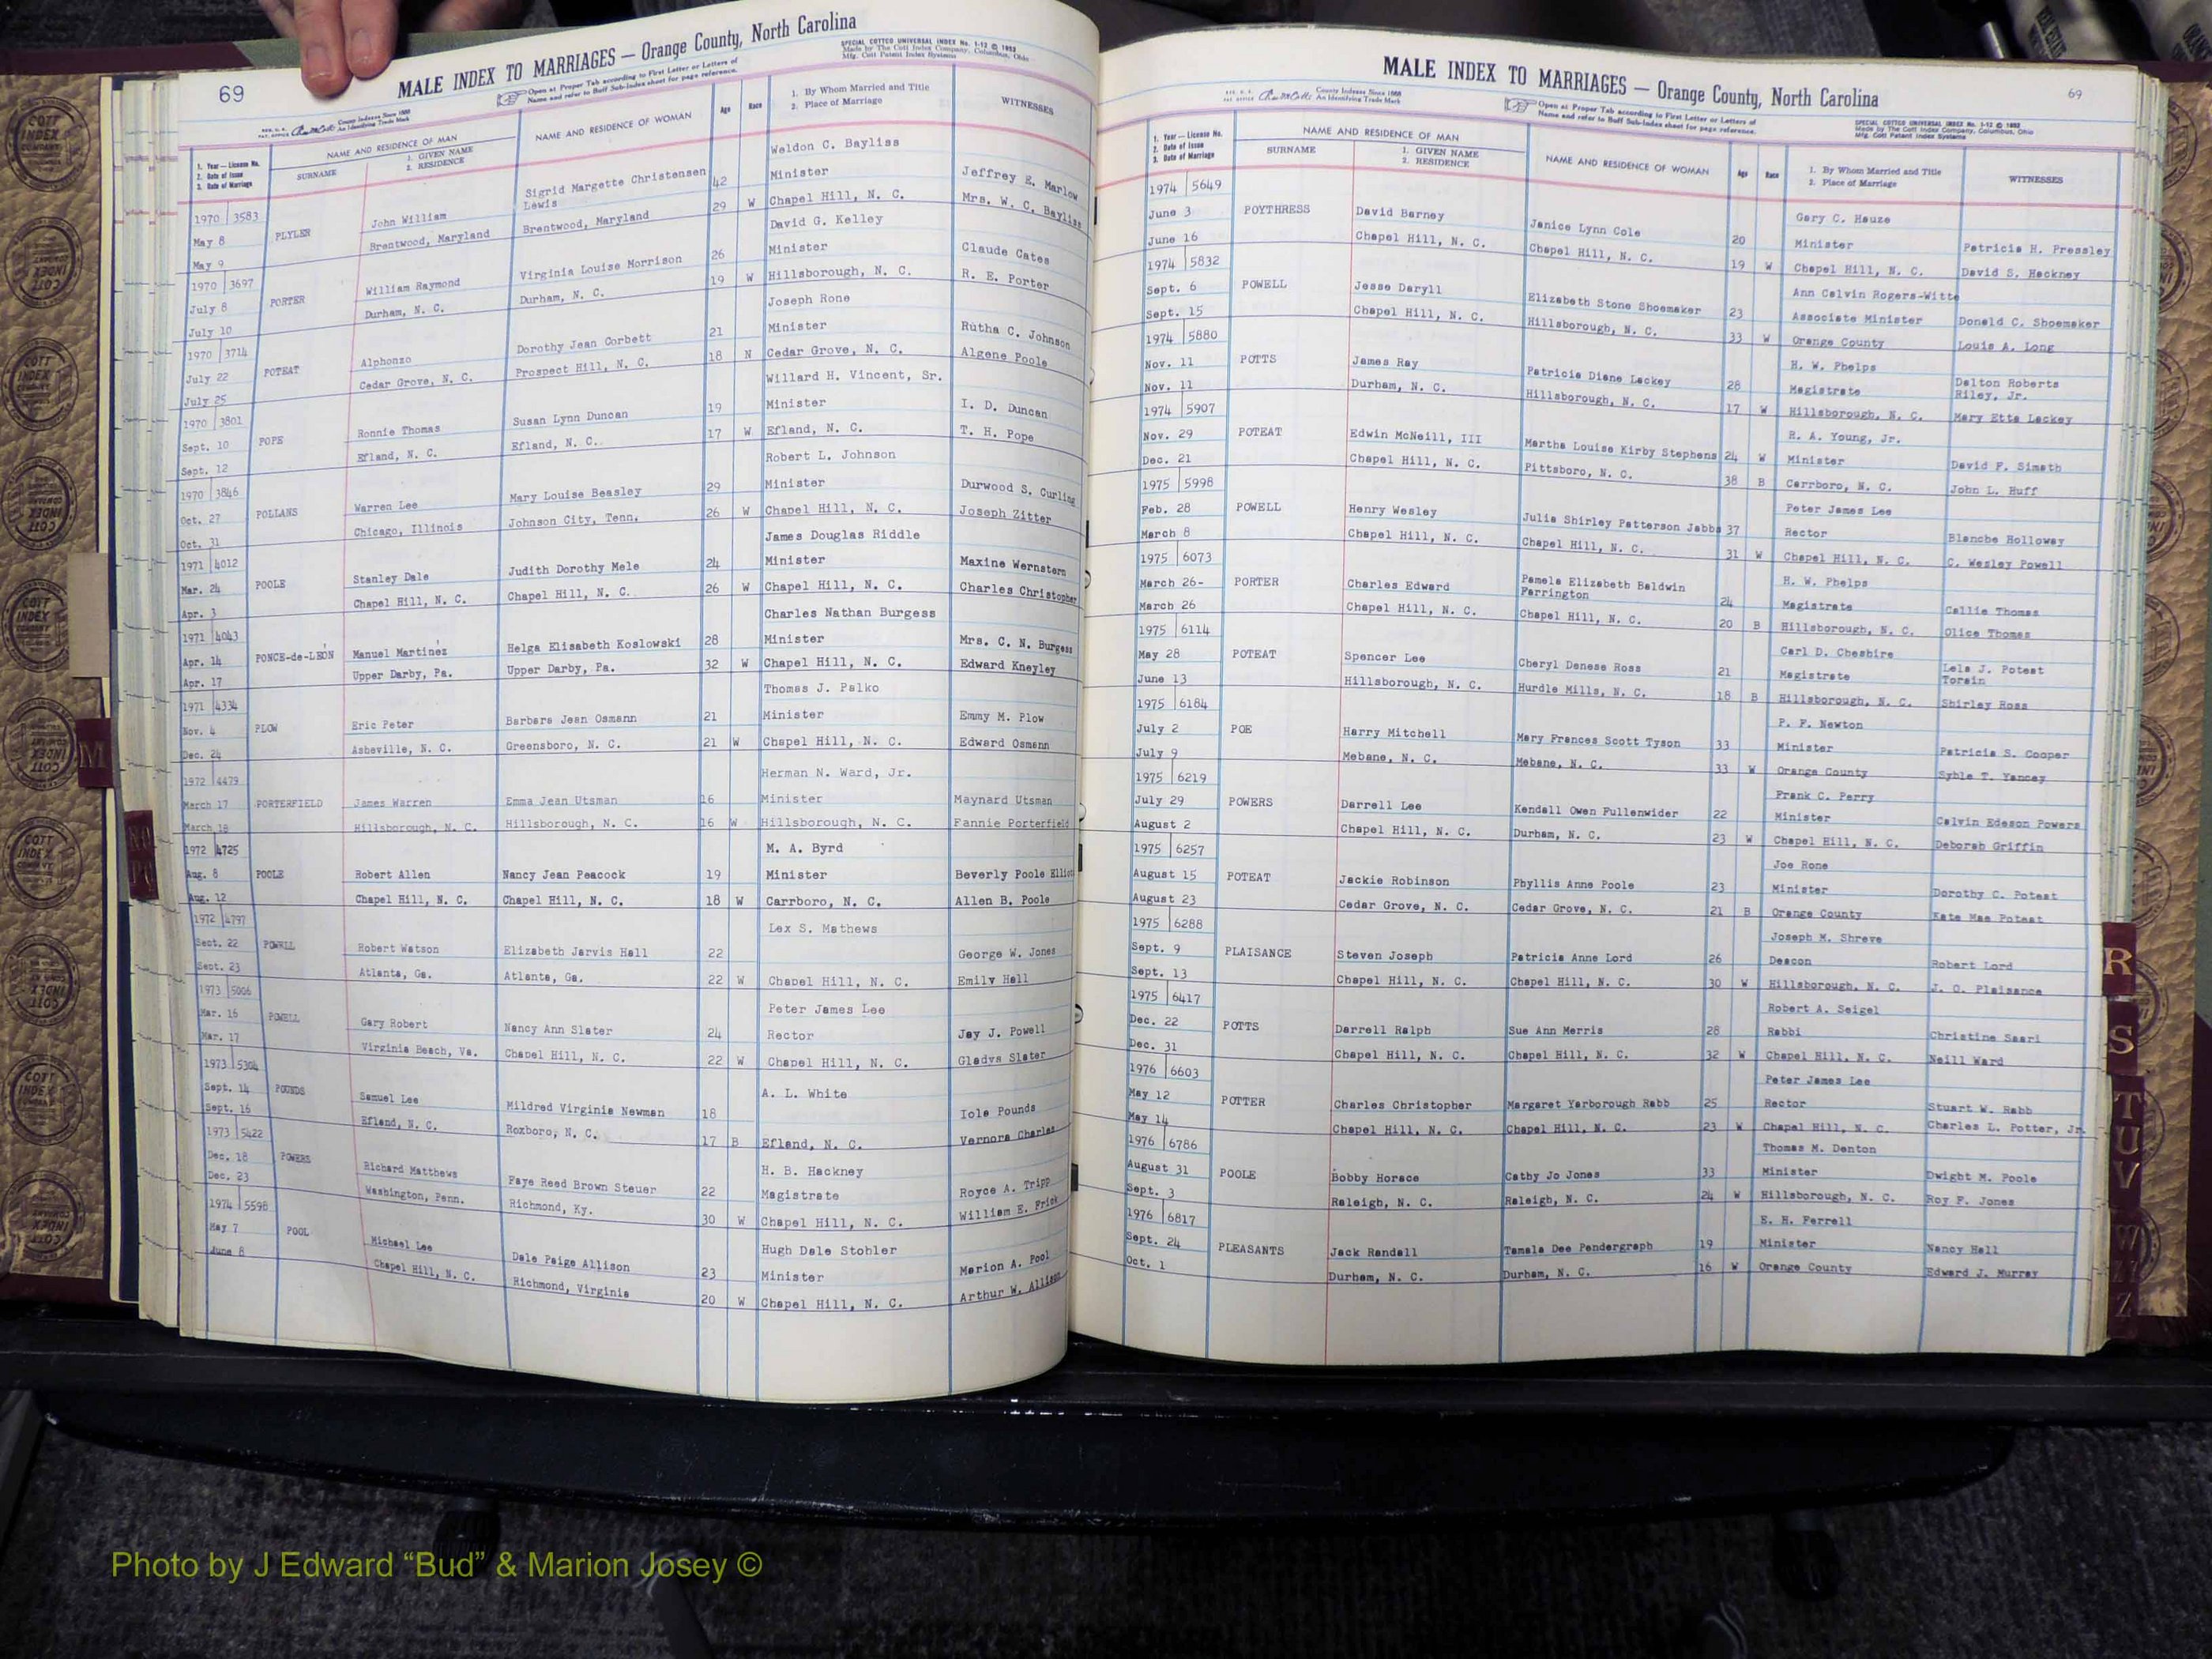 69
MALE INDEX TO MARRIAGES — Orange County, North Carolina
SPECIAL COTTCO UNIVERSAL INDEX No. 1-12 © 1952
Made by The Cott Index Company, Columbus, Ohio
Mfg. Cott Patent Index Systems
County Indexes Since 1888
An Identifying Trade Mark
Open at Proper Tab according to First Letter or Letters of
Name and refer to Buff Sub-Index sheet for page reference.
1. Year — License No.
2. Date of Issue
3. Date of Marriage
NAME AND RESIDENCE OF MAN
SURNAME
1. GIVEN NAME
2. RESIDENCE
NAME AND RESIDENCE OF WOMAN
Age
Race
1. By Whom Married and Title
2. Place of Marriage
WITNESSES
Weldon C. Bayliss
1970 3583 John William Sigrid Margette Christensen Lewis 42 Minister Jeffrey E. Marlow
May 8 PLYLER Brentwood, Maryland Brentwood, Maryland 29 W Chapel Hill, N. C. Mrs. W. C. Bayliss
May 9
David G. Kelley
1970 3697 William Raymond Virginia Louise Morrison 26 Minister Claude Cates
July 8 PORTER Durham, N. C. Durham, N. C. 19 W Hillsborough, N. C. R. E. Porter
July 10
Joseph Rone
1970 3714 Alphonzo Dorothy Jean Corbett 21 Minister Rutha C. Johnson
July 22 POTEAT Cedar Grove, N. C. Prospect Hill, N. C. 18 N Cedar Grove, N. C. Algene Poole
July 25
Willard H. Vincent, Sr.
1970 3801 Ronnie Thomas Susan Lynn Duncan 19 Minister I. D. Duncan
Sept. 10 POPE Efland, N. C. Efland, N. C. 17 W Efland, N. C. T. H. Pope
Sept. 12
Robert L. Johnson
1970 3846 Warren Lee Mary Louise Beasley 29 Minister Durwood S. Curling
Oct. 27 POLLANS Chicago, Illinois Johnson City, Tenn. 26 W Chapel Hill, N. C. Joseph Zitter
Oct. 31
James Douglas Riddle
1971 4012 Stanley Dale Judith Dorothy Mele 24 Minister Maxine Wernstern
Mar. 24 POOLE Chapel Hill, N. C. Chapel Hill, N. C. 26 W Chapel Hill, N. C. Charles Christopher
Apr. 3
Charles Nathan Burgess
1971 4043 Manuel Martinez Helga Elisabeth Koslowski 28 Minister Mrs. C. N. Burgess
Apr. 14 PONCE-de-LEÓN Upper Darby, Pa. Upper Darby, Pa. 32 W Chapel Hill, N. C. Edward Kneyley
Apr. 17
Thomas J. Palko
1971 4334 Eric Peter Barbara Jean Osmann 21 Minister Emmy M. Plow
Nov. 4 PLOW Asheville, N. C. Greensboro, N. C. 21 W Chapel Hill, N. C. Edward Osmann
Dec. 24
Herman N. Ward, Jr.
1972 4479
March 17 PORTERFIELD James Warren Emma Jean Utsman 16 Minister Maynard Utsman
March 18 Hillsborough, N. C. Hillsborough, N. C. 16 W Hillsborough, N. C. Fannie Porterfield
1972 4725 M. A. Byrd
Aug. 8 POOLE Robert Allen Nancy Jean Peacock 19 Minister Beverly Poole Elliot
Aug. 12 Chapel Hill, N. C. Chapel Hill, N. C. 18 W Carrboro, N. C. Allen B. Poole
1972 4797 Lex S. Mathews
Sept. 22 POWELL Robert Watson Elizabeth Jarvis Hall 22 George W. Jones
Sept. 23 Atlanta, Ga. Atlanta, Ga. 22 W Chapel Hill, N. C. Emily Hall
1973 5006 Peter James Lee
Mar. 16 POWELL Gary Robert Nancy Ann Slater 24 Rector Jay J. Powell
Mar. 17 Virginia Beach, Va. Chapel Hill, N. C. 22 W Chapel Hill, N. C. Gladys Slater
1973 5304 A. L. White
Sept. 14 POUNDS Samuel Lee Mildred Virginia Newman 18 Iole Pounds
Sept. 16 Efland, N. C. Roxboro, N. C. 17 B Efland, N. C. Vernora Charles
1973 5422 H. B. Hackney
Dec. 18 POWERS Richard Matthews Faye Reed Brown Steuer 22 Magistrate Royce A. Tripp
Dec. 23 Washington, Penn. Richmond, Ky. 30 W Chapel Hill, N. C. William E. Frick
1974 5598 Hugh Dale Stohler
May 7 POOL Michael Lee Dale Paige Allison 23 Minister Marion A. Pool
June 8 Chapel Hill, N. C. Richmond, Virginia 20 W Chapel Hill, N. C. Arthur W. Allison
MALE INDEX TO MARRIAGES — Orange County, North Carolina
69
County Indexes Since 1888
An Identifying Trade Mark
Open at Proper Tab according to First Letter or Letters of
Name and refer to Buff Sub-Index sheet for page reference.
SPECIAL COTTCO UNIVERSAL INDEX No. 1-12 © 1952
Made by The Cott Index Company, Columbus, Ohio
Mfg. Cott Patent Index Systems
1. Year — License No.
2. Date of Issue
3. Date of Marriage
NAME AND RESIDENCE OF MAN
SURNAME
1. GIVEN NAME
2. RESIDENCE
NAME AND RESIDENCE OF WOMAN
Age
Race
1. By Whom Married and Title
2. Place of Marriage
WITNESSES
1974 5649 Gary C. Hauze
June 3 POYTHRESS David Barney Janice Lynn Cole 20 Minister Patricia H. Pressley
June 16 Chapel Hill, N. C. Chapel Hill, N. C. 19 W Chapel Hill, N. C. David S. Hackney
1974 5832 Ann Calvin Rogers-Witte
Sept. 6 POWELL Jesse Daryll Elizabeth Stone Shoemaker 23 Associate Minister Donald C. Shoemaker
Sept. 15 Chapel Hill, N. C. Hillsborough, N. C. 33 W Orange County Louis A. Long
1974 5880 H. W. Phelps
Nov. 11 POTTS James Ray Patricia Diane Lackey 28 Magistrate Dalton Roberts Riley, Jr.
Nov. 11 Durham, N. C. Hillsborough, N. C. 17 W Hillsborough, N. C. Mary Etta Lackey
1974 5907 R. A. Young, Jr.
Nov. 29 POTEAT Edwin McNeill, III Martha Louise Kirby Stephens 24 W Minister David F. Simeth
Dec. 21 Chapel Hill, N. C. Pittsboro, N. C. 38 B Carrboro, N. C. John L. Huff
1975 5998 Peter James Lee
Feb. 28 POWELL Henry Wesley Julia Shirley Patterson Jabbs 37 Rector Blanche Holloway
March 8 Chapel Hill, N. C. Chapel Hill, N. C. 31 W Chapel Hill, N. C. C. Wesley Powell
1975 6073 H. W. Phelps
March 26- PORTER Charles Edward Pamela Elizabeth Baldwin Farrington 24 Magistrate Callie Thomas
March 26 Chapel Hill, N. C. Chapel Hill, N. C. 20 B Hillsborough, N. C. Olice Thomas
1975 6114 Carl D. Cheshire
May 28 POTEAT Spencer Lee Cheryl Denese Ross 21 Magistrate Lela J. Poteat Torain
June 13 Hillsborough, N. C. Hurdle Mills, N. C. 18 B Hillsborough, N. C. Shirley Ross
1975 6184 P. F. Newton
July 2 POE Harry Mitchell Mary Frances Scott Tyson 33 Minister Patricia S. Cooper
July 9 Mebane, N. C. Mebane, N. C. 33 W Orange County Syble T. Yancey
1975 6219 Frank C. Perry
July 29 POWERS Darrell Lee Kendall Owen Fullenwider 22 Minister Calvin Edeson Powers
August 2 Chapel Hill, N. C. Durham, N. C. 23 W Chapel Hill, N. C. Deborah Griffin
1975 6257 Joe Rone
August 15 POTEAT Jackie Robinson Phyllis Anne Poole 23 Minister Dorothy C. Poteat
August 23 Cedar Grove, N. C. Cedar Grove, N. C. 21 B Orange County Kate Mae Poteat
1975 6288 Joseph M. Shreve
Sept. 9 PLAISANCE Steven Joseph Patricia Anne Lord 26 Deacon Robert Lord
Sept. 13 Chapel Hill, N. C. Chapel Hill, N. C. 30 W Hillsborough, N. C. J. O. Plaisance
1975 6417 Robert A. Seigel
Dec. 22 POTTS Darrell Ralph Sue Ann Merris 28 Rabbi Christine Saarl
Dec. 31 Chapel Hill, N. C. Chapel Hill, N. C. 32 W Chapel Hill, N. C. Neill Ward
1976 6603 Peter James Lee
May 12 POTTER Charles Christopher Margaret Yarborough Rabb 25 Rector Stuart W. Rabb
May 14 Chapel Hill, N. C. Chapel Hill, N. C. 23 W Chapel Hill, N. C. Charles L. Potter, Jr.
1976 6786 Thomas M. Denton
August 31 POOLE Bobby Horace Cathy Jo Jones 33 Minister Dwight M. Poole
Sept. 3 Raleigh, N. C. Raleigh, N. C. 24 W Hillsborough, N. C. Roy F. Jones
1976 6817 E. H. Ferrell
Sept. 24 PLEASANTS Jack Randall Tamala Dee Pendergraph 19 Minister Nancy Hall
Oct. 1 Durham, N. C. Durham, N. C. 16 W Orange County Edward J. Murray
M
R
S
T
U
V
W
Z
Photo by J Edward “Bud” & Marion Josey ©